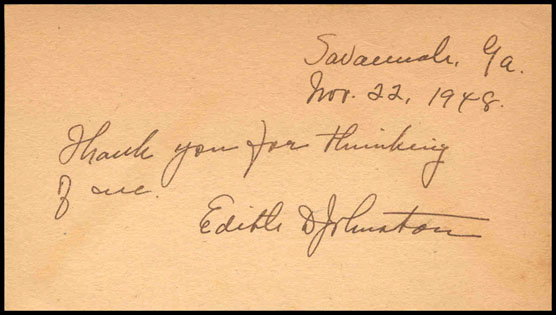 Savannah, Ga.
Nov. 22, 1948.
Thank you for thinking
of me.
Edith D Johnston